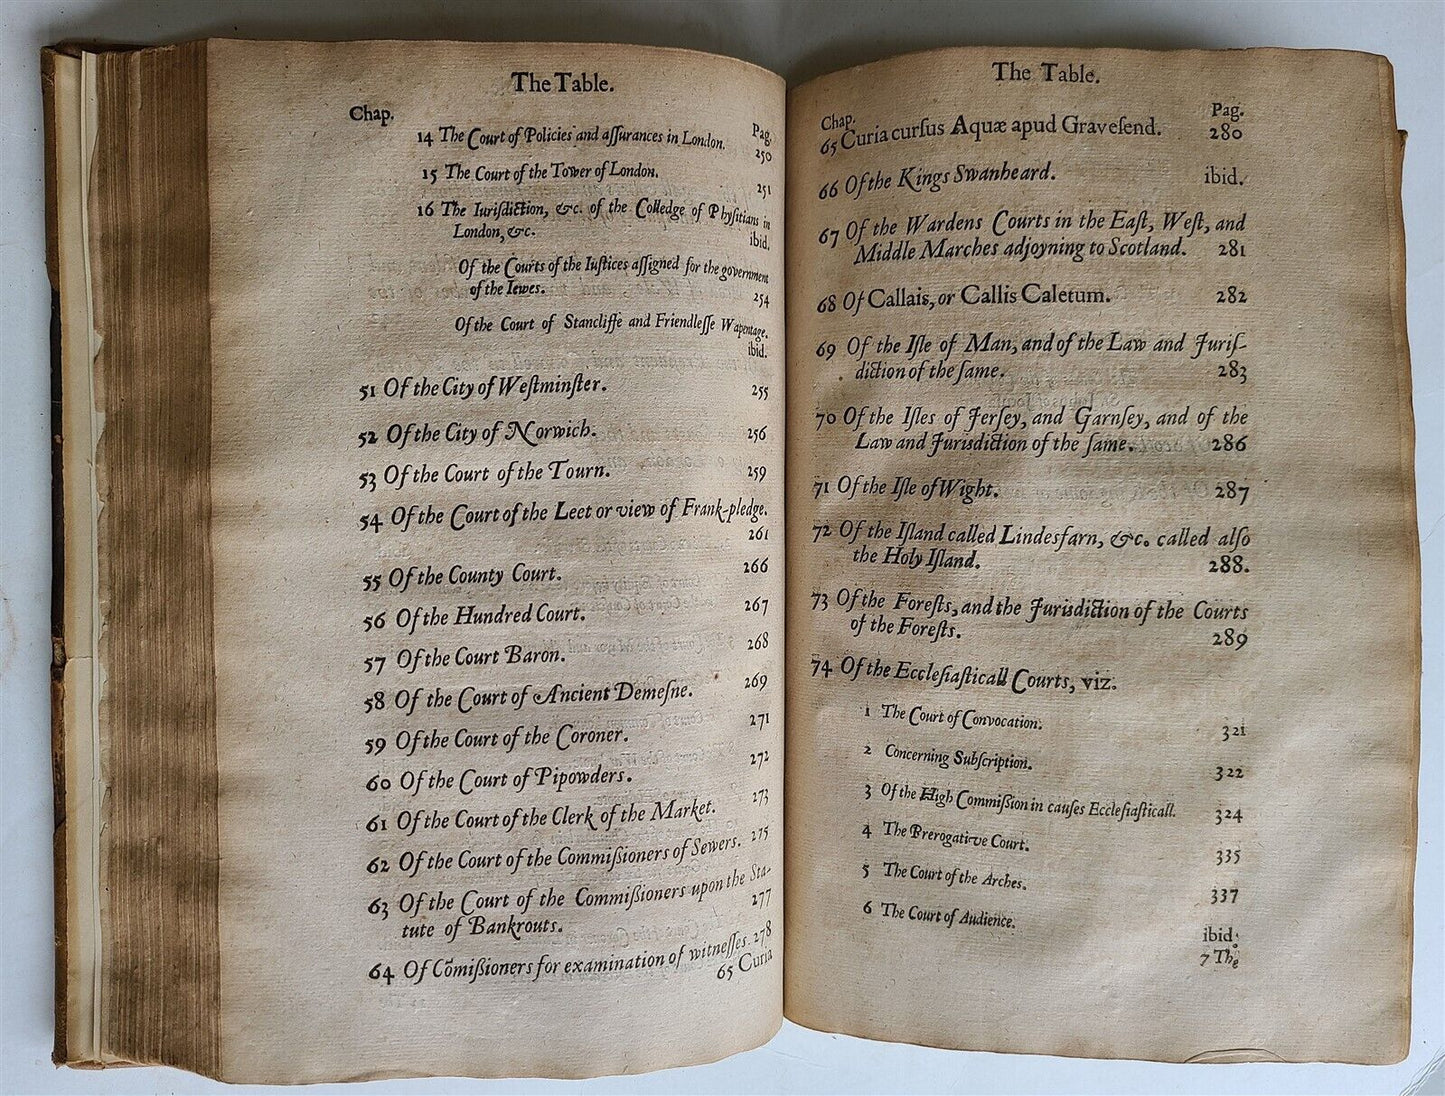 The Table.
Chap.
Pag.
14 The Court of Policies and aſſurances in London. 250
15 The Court of the Tower of London. 251
16 The Iuriſdiction, &c. of the Colledge of Phyſitians in
London, &c. ibid.
Of the Courts of the Iuſtices aſſigned for the government
of the Iewes. 254
Of the Court of Stancliffe and Friendleſſe Wapentage.
ibid.
51 Of the City of Weſtminſter. 255
52 Of the City of Norwich. 256
53 Of the Court of the Tourn. 259
54 Of the Court of the Leet or view of Frank-pledge.
261
55 Of the County Court. 266
56 Of the Hundred Court. 267
57 Of the Court Baron. 268
58 Of the Court of Ancient Demeſne. 269
59 Of the Court of the Coroner. 271
60 Of the Court of Pipowders. 272
61 Of the Court of the Clerk of the Market. 273
62 Of the Court of the Commiſſioners of Sewers. 275
63 Of the Court of the Commiſſioners upon the Sta-
tute of Bankrouts. 277
64 Of Cõmiſſioners for examination of witneſſes. 278
65 Curia
The Table.
Chap.
Pag.
65 Curia curſus Aquæ apud Graveſend. 280
66 Of the Kings Swanheard. ibid.
67 Of the Wardens Courts in the Eaſt, Weſt, and
Middle Marches adjoyning to Scotland. 281
68 Of Callais, or Callis Caletum. 282
69 Of the Iſle of Man, and of the Law and Juriſ-
diction of the ſame. 283
70 Of the Iſles of Jerſey, and Garnſey, and of the
Law and Jurisdiction of the ſame. 286
71 Of the Iſle of Wight. 287
72 Of the Iſland called Lindesfarn, &c. called alſo
the Holy Iſland. 288.
73 Of the Foreſts, and the Jurisdiction of the Courts
of the Foreſts. 289
74 Of the Eccleſiaſticall Courts, viz.
1 The Court of Convocation. 321
2 Concerning Subſcription. 322
3 Of the High Commiſſion in cauſes Eccleſiaſticall. 324
4 The Prerogative Court. 335
5 The Court of the Arches. 337
6 The Court of Audience. ibid.
7 The